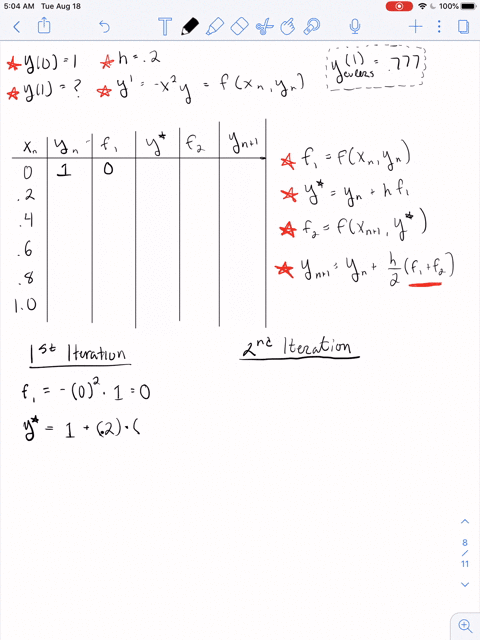 5:04 AM Tue Aug 18
100%
y(0) = 1
h = .2
y(1) = ?
y' = -x²y = f(xₙ, yₙ)
y(1) eulers = .777
xₙ yₙ f₁ y* f₂ yₙ₊₁
0 1 0
.2
.4
.6
.8
1.0
f₁ = F(xₙ, yₙ)
y* = yₙ + h f₁
f₂ = F(xₙ₊₁, y*)
yₙ₊₁ = yₙ + h/2 (f₁ + f₂)
1st Iteration
2nd Iteration
f₁ = -(0)² · 1 = 0
y* = 1 + (.2) · (
8
/
11